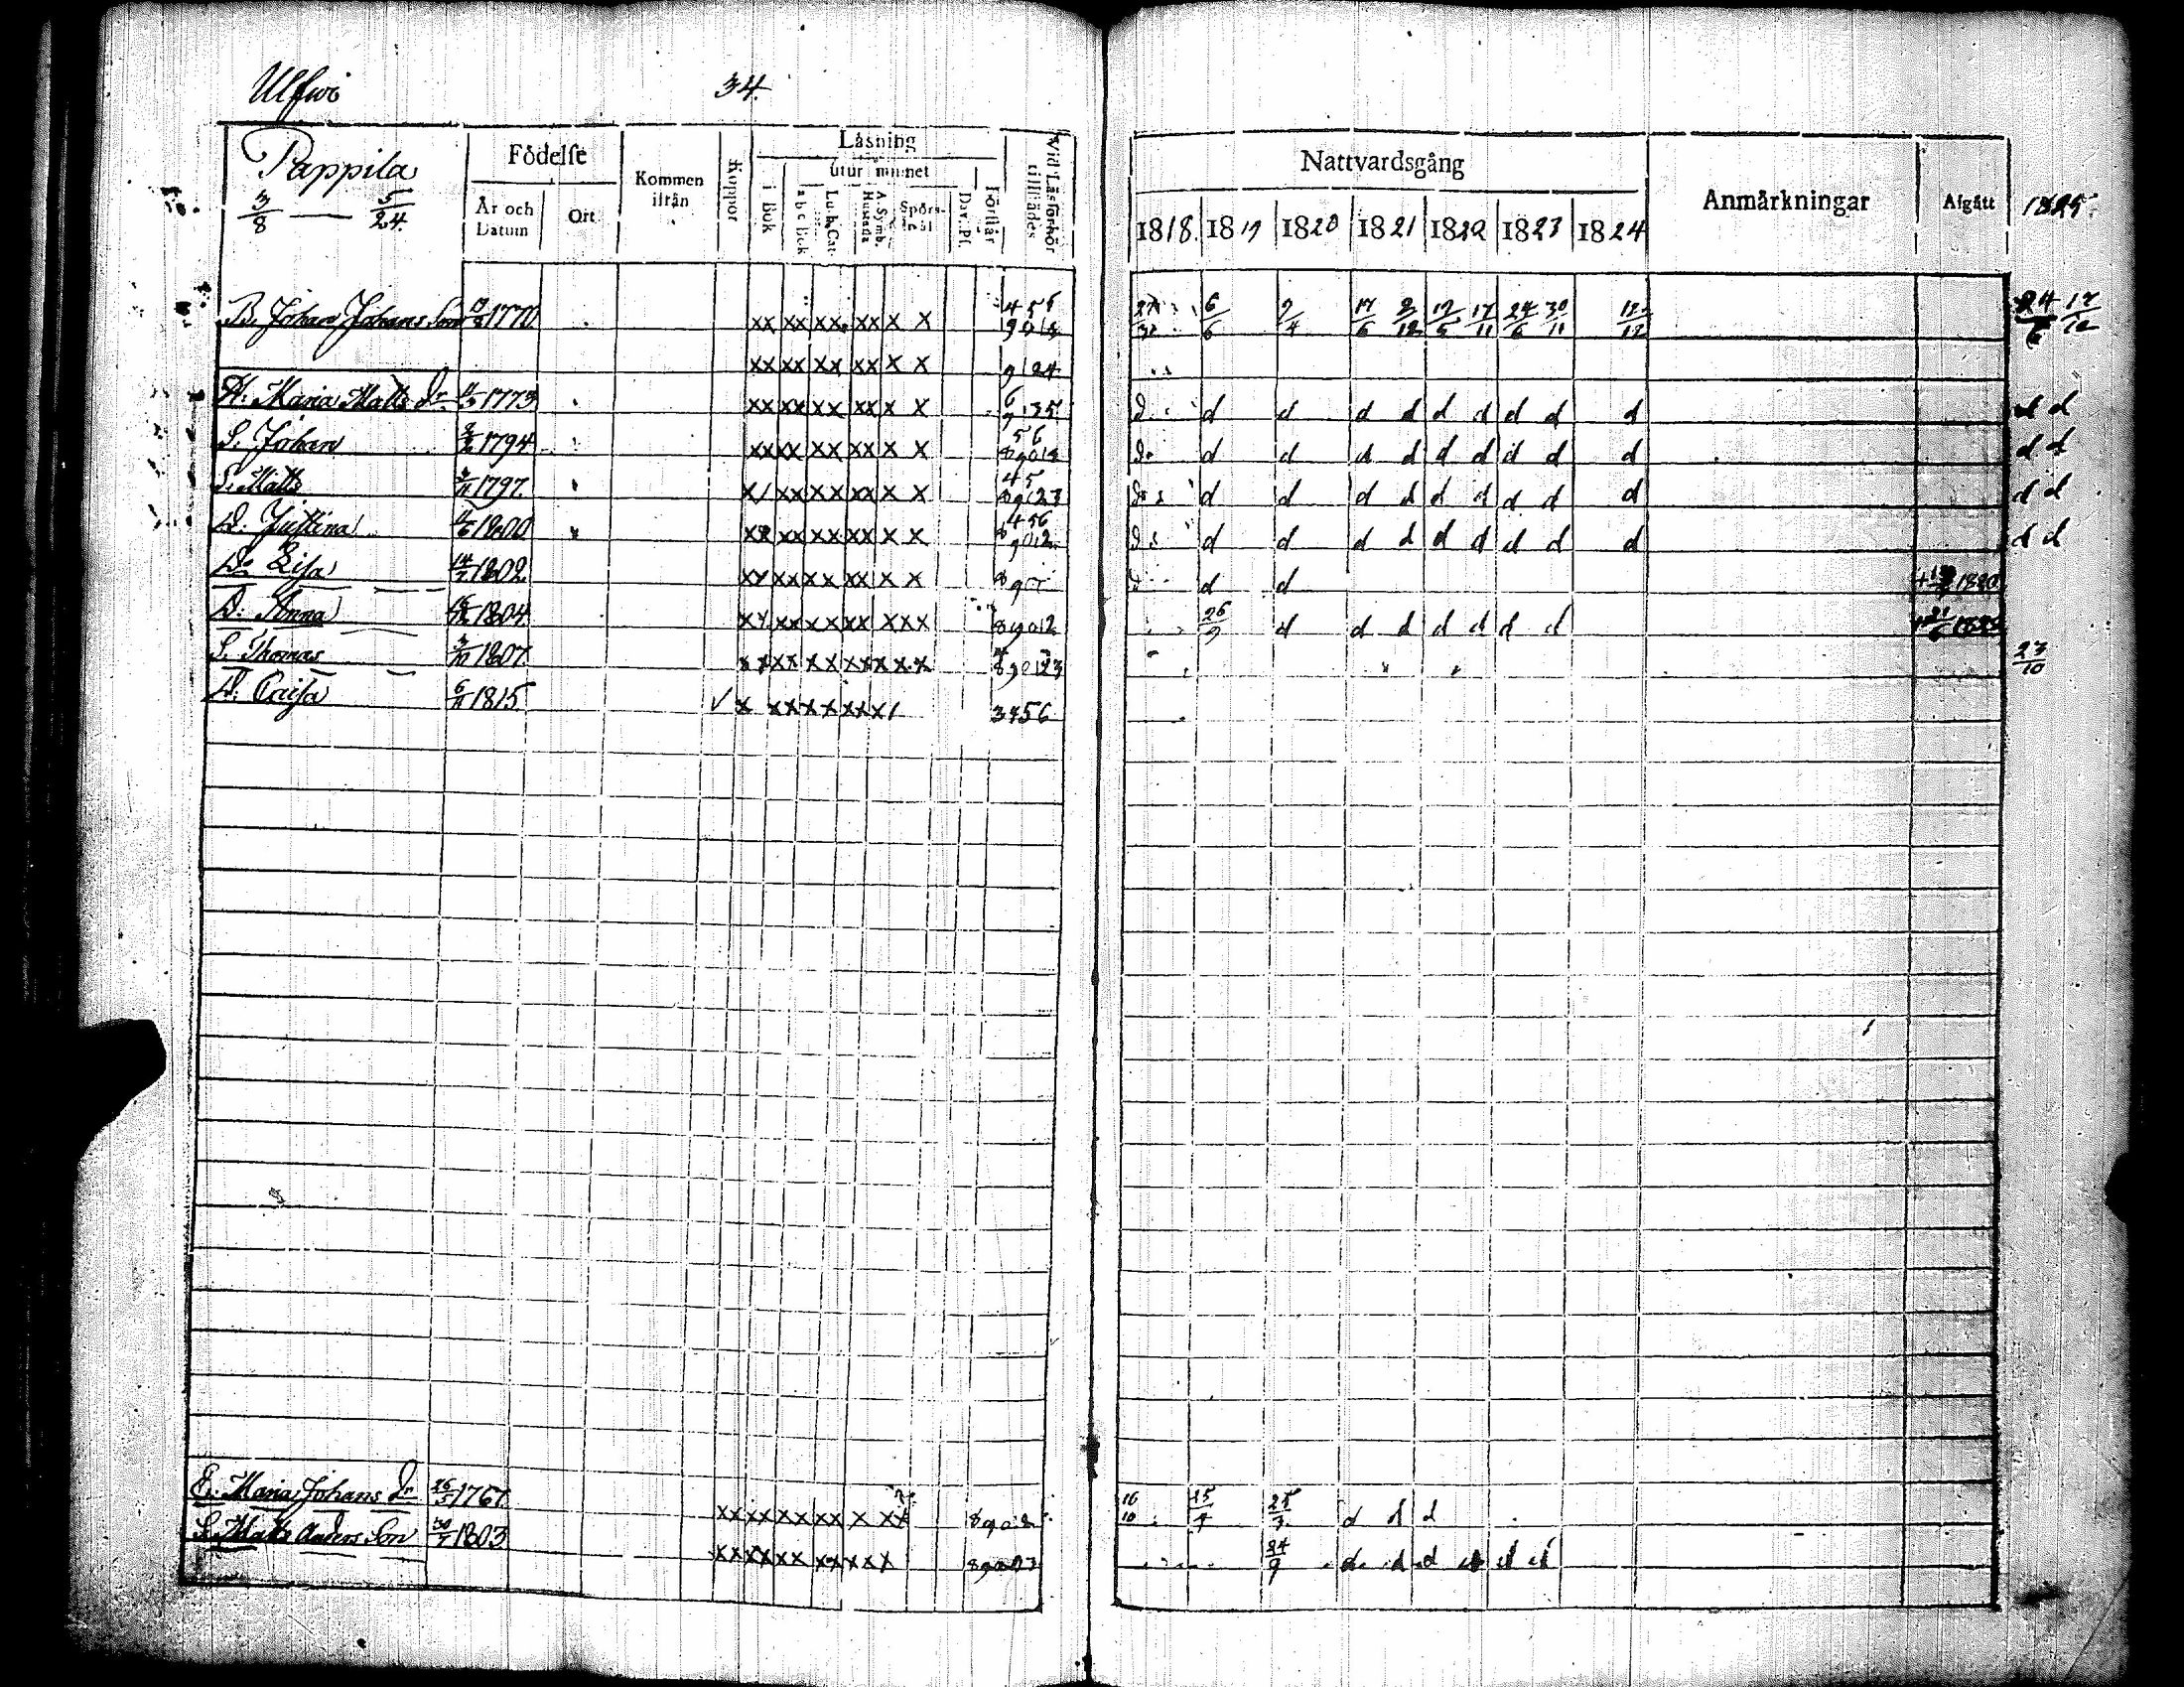 Ulfwi 34.
Pappila
3/8 — 5/24.
Födelse
År och Datum
Ort
Kommen ifrån
Koppor
Läsning
utur minnet
i Bok
a b c Bok
Luth. Cat.
A. Symb. Hustafla
Spörsmål
Dav. Ps.
Förstår
Vid Läsförhör tillstädes
Nattvardsgång
1818. 1819 1820 1821 1822 1823 1824
Anmärkningar
Afgått
1825.
B. Johan Johans Son 1770 xx xx xx xx x x 6/6 2/4 17/6 12/5 17/11 24/6 30/11 12/12 24/6 17/12
xx xx xx xx x x 9124
H. Maria Matts Dr 1773 xx xx xx xx x x d d d d d d d d d d d d
S. Johan 1794 xx xx xx xx x x d d d d d d d d d d d
S. Matts 1797 x/ xx xx xx x x d d d d d d d d d d d
D. Justina 1800 xx xx xx xx x x d d d d d d d d d d d
D. Lisa 14/7 1802 xx xx xx xx x x d d 1820
D. Anna 1804 xx xx xx xx xxx 89012 26/9 d d d d d d d
S. Thomas 3/10 1807 xx xx xx xx xx x 890123 23/10
D. Caisa 6/11 1815 √ x xx xx xx x/ 3456
E. Maria Johans Dr 26/5 1767 xx xx xx xx x xx 16/10 15/4 25/3 d d d
S. Matts Anders Son 30/7 1803 xx xx xx xx xx 24/9 d d d d d d